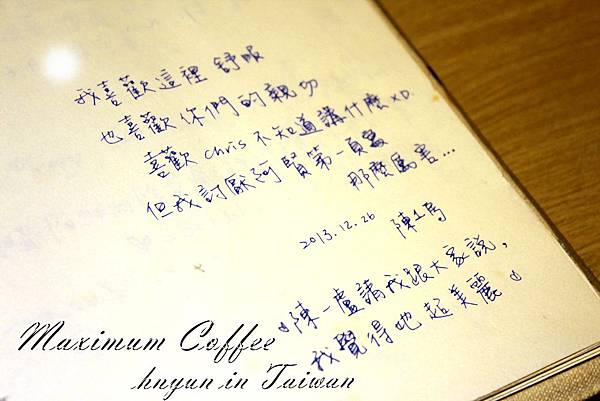 我喜歡這裡 舒服
也喜歡你們的親切
喜歡 chris 不知道講什麼 XD.
但我討厭河賢第一頁寫
那麼厲害...
2013.12.26 陳1
陳一盧請我跟大家說,
我覺得吔超美麗
Maximum Coffee
hnyun in Taiwan